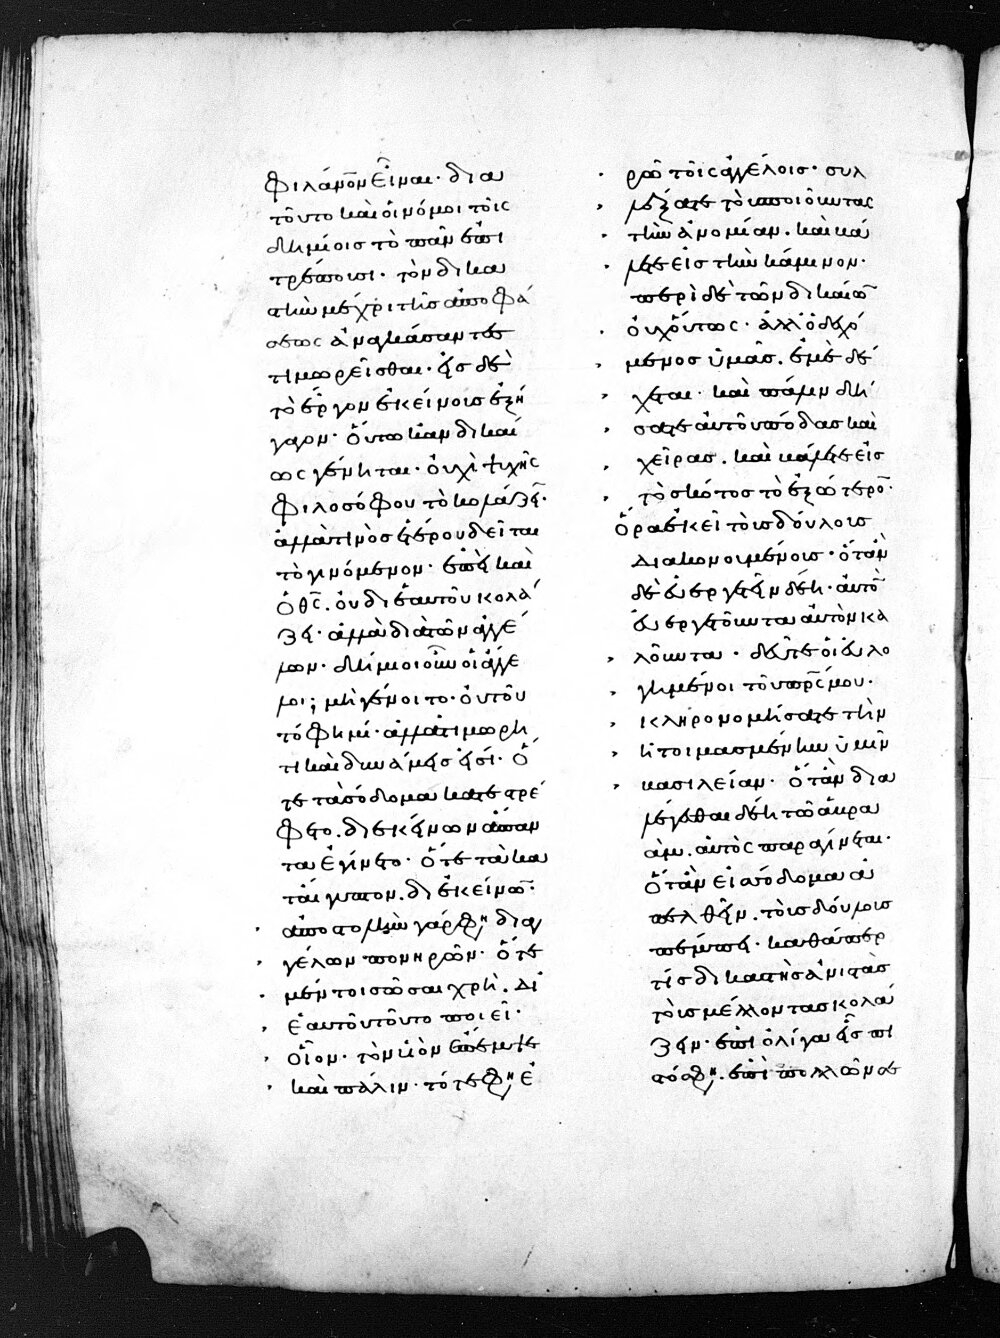 φιλάνον εἶναι· διὰ
τοῦτο καὶ οἱ νόμοι τοῖς
δημίοις τὸ πᾶν ἐπι
τρέπουσι· τὸν δικα
τὴν μέχρι τῆς ἀποφά
σεως ἀναγκάσαντες
τιμωρεῖσθαι· εἰς δὲ
τὸ ἔργον ἐκείνοις ἐξῆ
γαγον· οὕτω κἂν δικαί
ως γένηται· οὐχὶ ψυχῆς
φιλοσόφου τὸ κολάζειν·
ἀλλὰ τινὸς ἑτέρου δεῖται
τὸ γινόμενον· ἐπεὶ καὶ
ὁ θς. οὐ δι ἑαυτοῦ κολά
ζει· ἀλλὰ διὰ τῶν ἀγγέ
λων· δήμιοι οὖν οἱ ἄγγε
λοι; μὴ γένοιτο· οὐ τοῦ
τό φημι· ἀλλὰ τιμωρη
τικαὶ δυνάμεις εἰσί· ὅ
τε τὰ σόδομα κατεστρέ
φετο. δι ἐκείνων ἅπαν
τα ἐγίνετο· ὅτε τὰ κα
τ αἴγυπτον. δι ἐκείνων·
ἀποστολὴν γάρ φη δι ἀγ
γέλων πονηρῶν· ὅτε
μέντοι σῶσαι χρὴ. δι
ἑαυτοῦ τοῦτο ποιεῖ·
οἷον· τὸν υἱὸν ἔπεμψε
καὶ πάλιν· τότε φη ἐ
ρῶ τοῖς ἀγγέλοις· συλ
λέξατε τοὺς ποιοῦντας
τὴν ἀνομίαν. καὶ βά
λετε εἰς τὴν κάμινον·
περὶ δὲ τῶν δικαίων
οὐχ οὕτως· ἀλλ ὁ δεχό
μενος ὑμᾶς. ἐμὲ δέ
χεται· καὶ πάλιν δή
σατε αὐτοῦ πόδας καὶ
χεῖρας. καὶ βάλετε εἰς
τὸ σκότος τὸ ἐξώτερον·
ὅρα ἐκεῖ τοῖς δούλοις
διακονουμένοις· ὅταν
δὲ εὐεργετεῖν δέῃ· αὐτὸν
εὐεργετοῦντα αὐτὸν κα
λοῦντα· δεῦτε οἱ εὐλο
γημένοι τοῦ πρς μου.
κληρονομήσατε τὴν
ἡτοιμασμένην ὑμῖν
βασιλείαν· ὅταν δια
λέγεσθαι δέῃ τῷ ἀβρα
άμ. αὐτὸς παραγίνεται·
ὅταν εἰς σόδομα ἀ
πελθεῖν. τοὺς δούλους
πέμπει· καθάπερ
τίς δικαστὴς ἀνιστὰς
τοὺς μέλλοντας κολά
ζειν· ἐπὶ ὀλίγα εἶς πι
στός φη. ἐπὶ πολλῶν σε